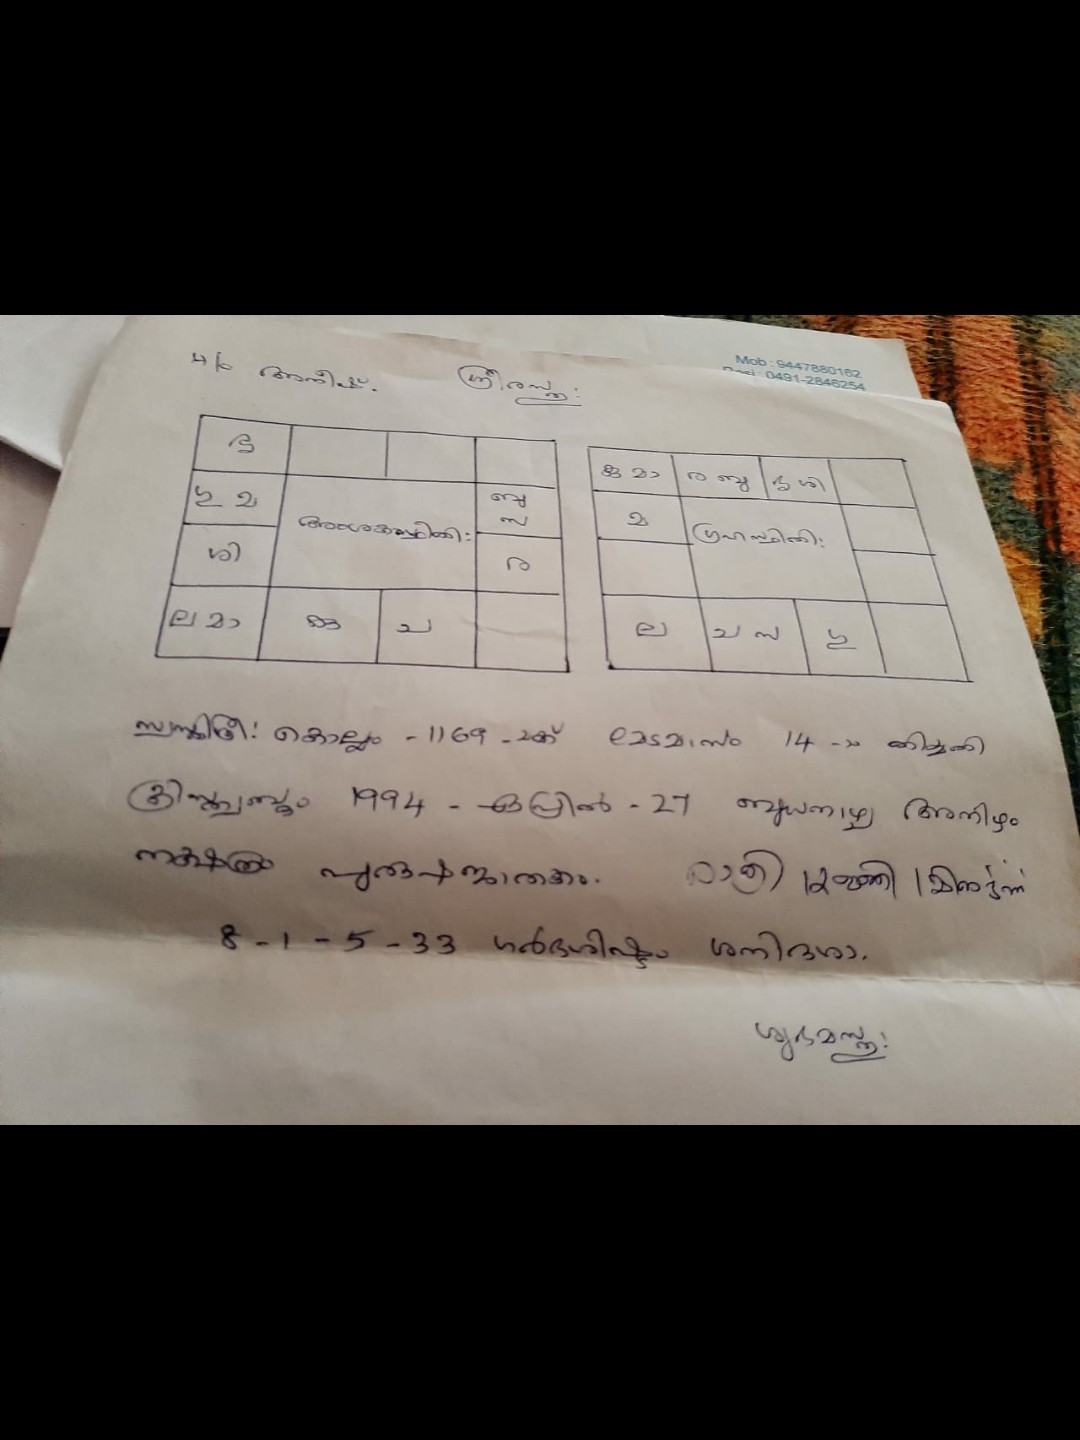 Mob : 9447880162
0491-2846254
അനീഷ്. ശ്രീരസ്തു:
ഭൃ
ഗു മ ബു സ
അംശകസ്ഥിതി:
ശി ര
ല മാ കു ച
കു മാ ര ബു ഭൃ ശി
മ ഗ്രഹസ്ഥിതി:
ല ച സ ഗു
കൊല്ലം - 1169 - മത് മേടമാസം 14 -ാം തിയ്യതി
ക്രിസ്ത്വബ്ദം 1994 - ഏപ്രിൽ - 27 ബുധനാഴ്ച അനിഴം
നക്ഷത്രം പുരുഷജാതകം. രാത്രി 12മണി 1മിനുട്ടിന്ന്
8 - 1 - 5 - 33 ഗർഭശിഷ്ടം ശനിദശാ.
ശുഭമസ്തു: